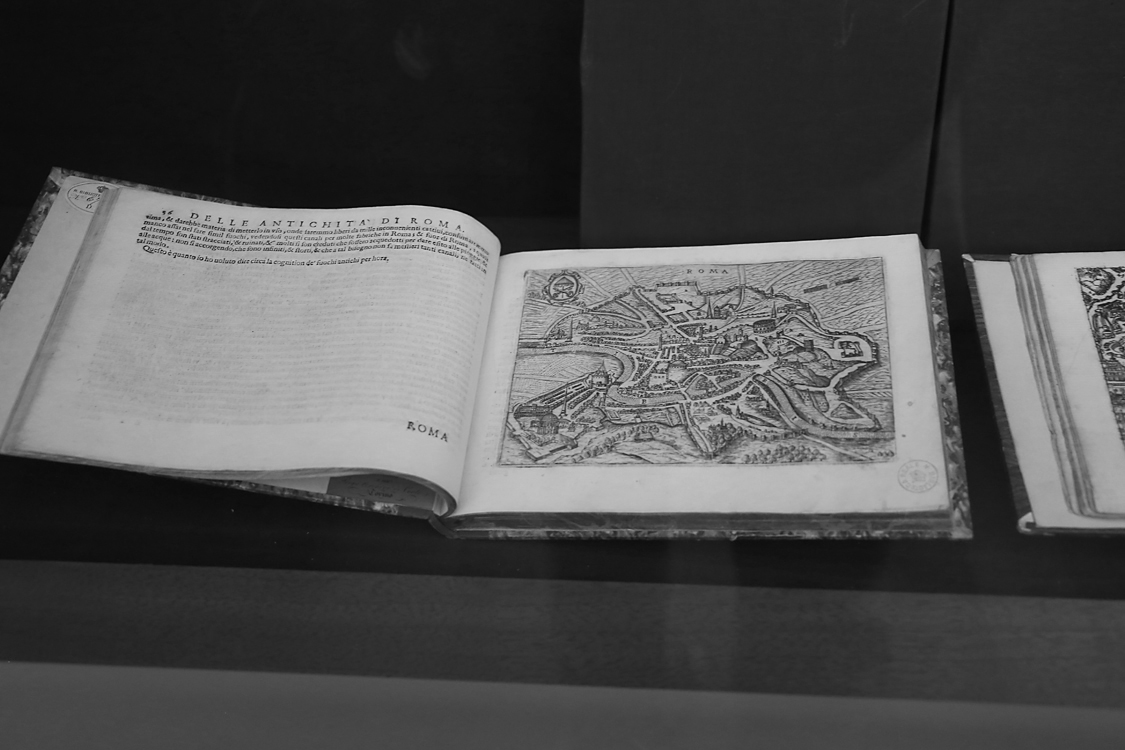 96 DELLE ANTICHITA' DI ROMA.
sima, & darebbe materia di metterlo in uso, onde saremmo liberi da mille inconuenienti
manco assai nel fare simil fuochi, vedendosi questi canali per molte fabriche in Roma, & fuor di Roma,
dal tempo son stati stracciati, & ruinati, & molti si son creduti che fussero acquedotti per dare esito alle
alle acque; non si accorgendo, che sono infiniti, & storti, & che a tal bisogno non fa mestieri tanti canali
tal modo.
Questo è quanto io ho uoluto dire circa la cognition de' fuochi antichi per hora,
ROMA
ROMA